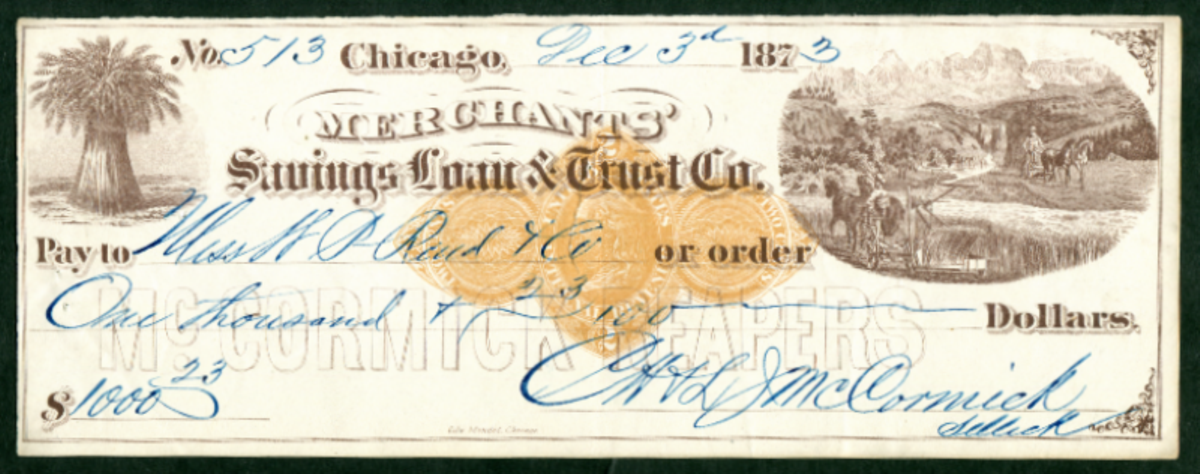 No. 513 Chicago, Dec 3d 1873
MERCHANTS'
Savings Loan & Trust Co.
Pay to Mess W D & Co or order
One thousand & 23/100 Dollars.
McCORMICK REAPERS
$ 1000 23
C H & L J McCormick
Sellick